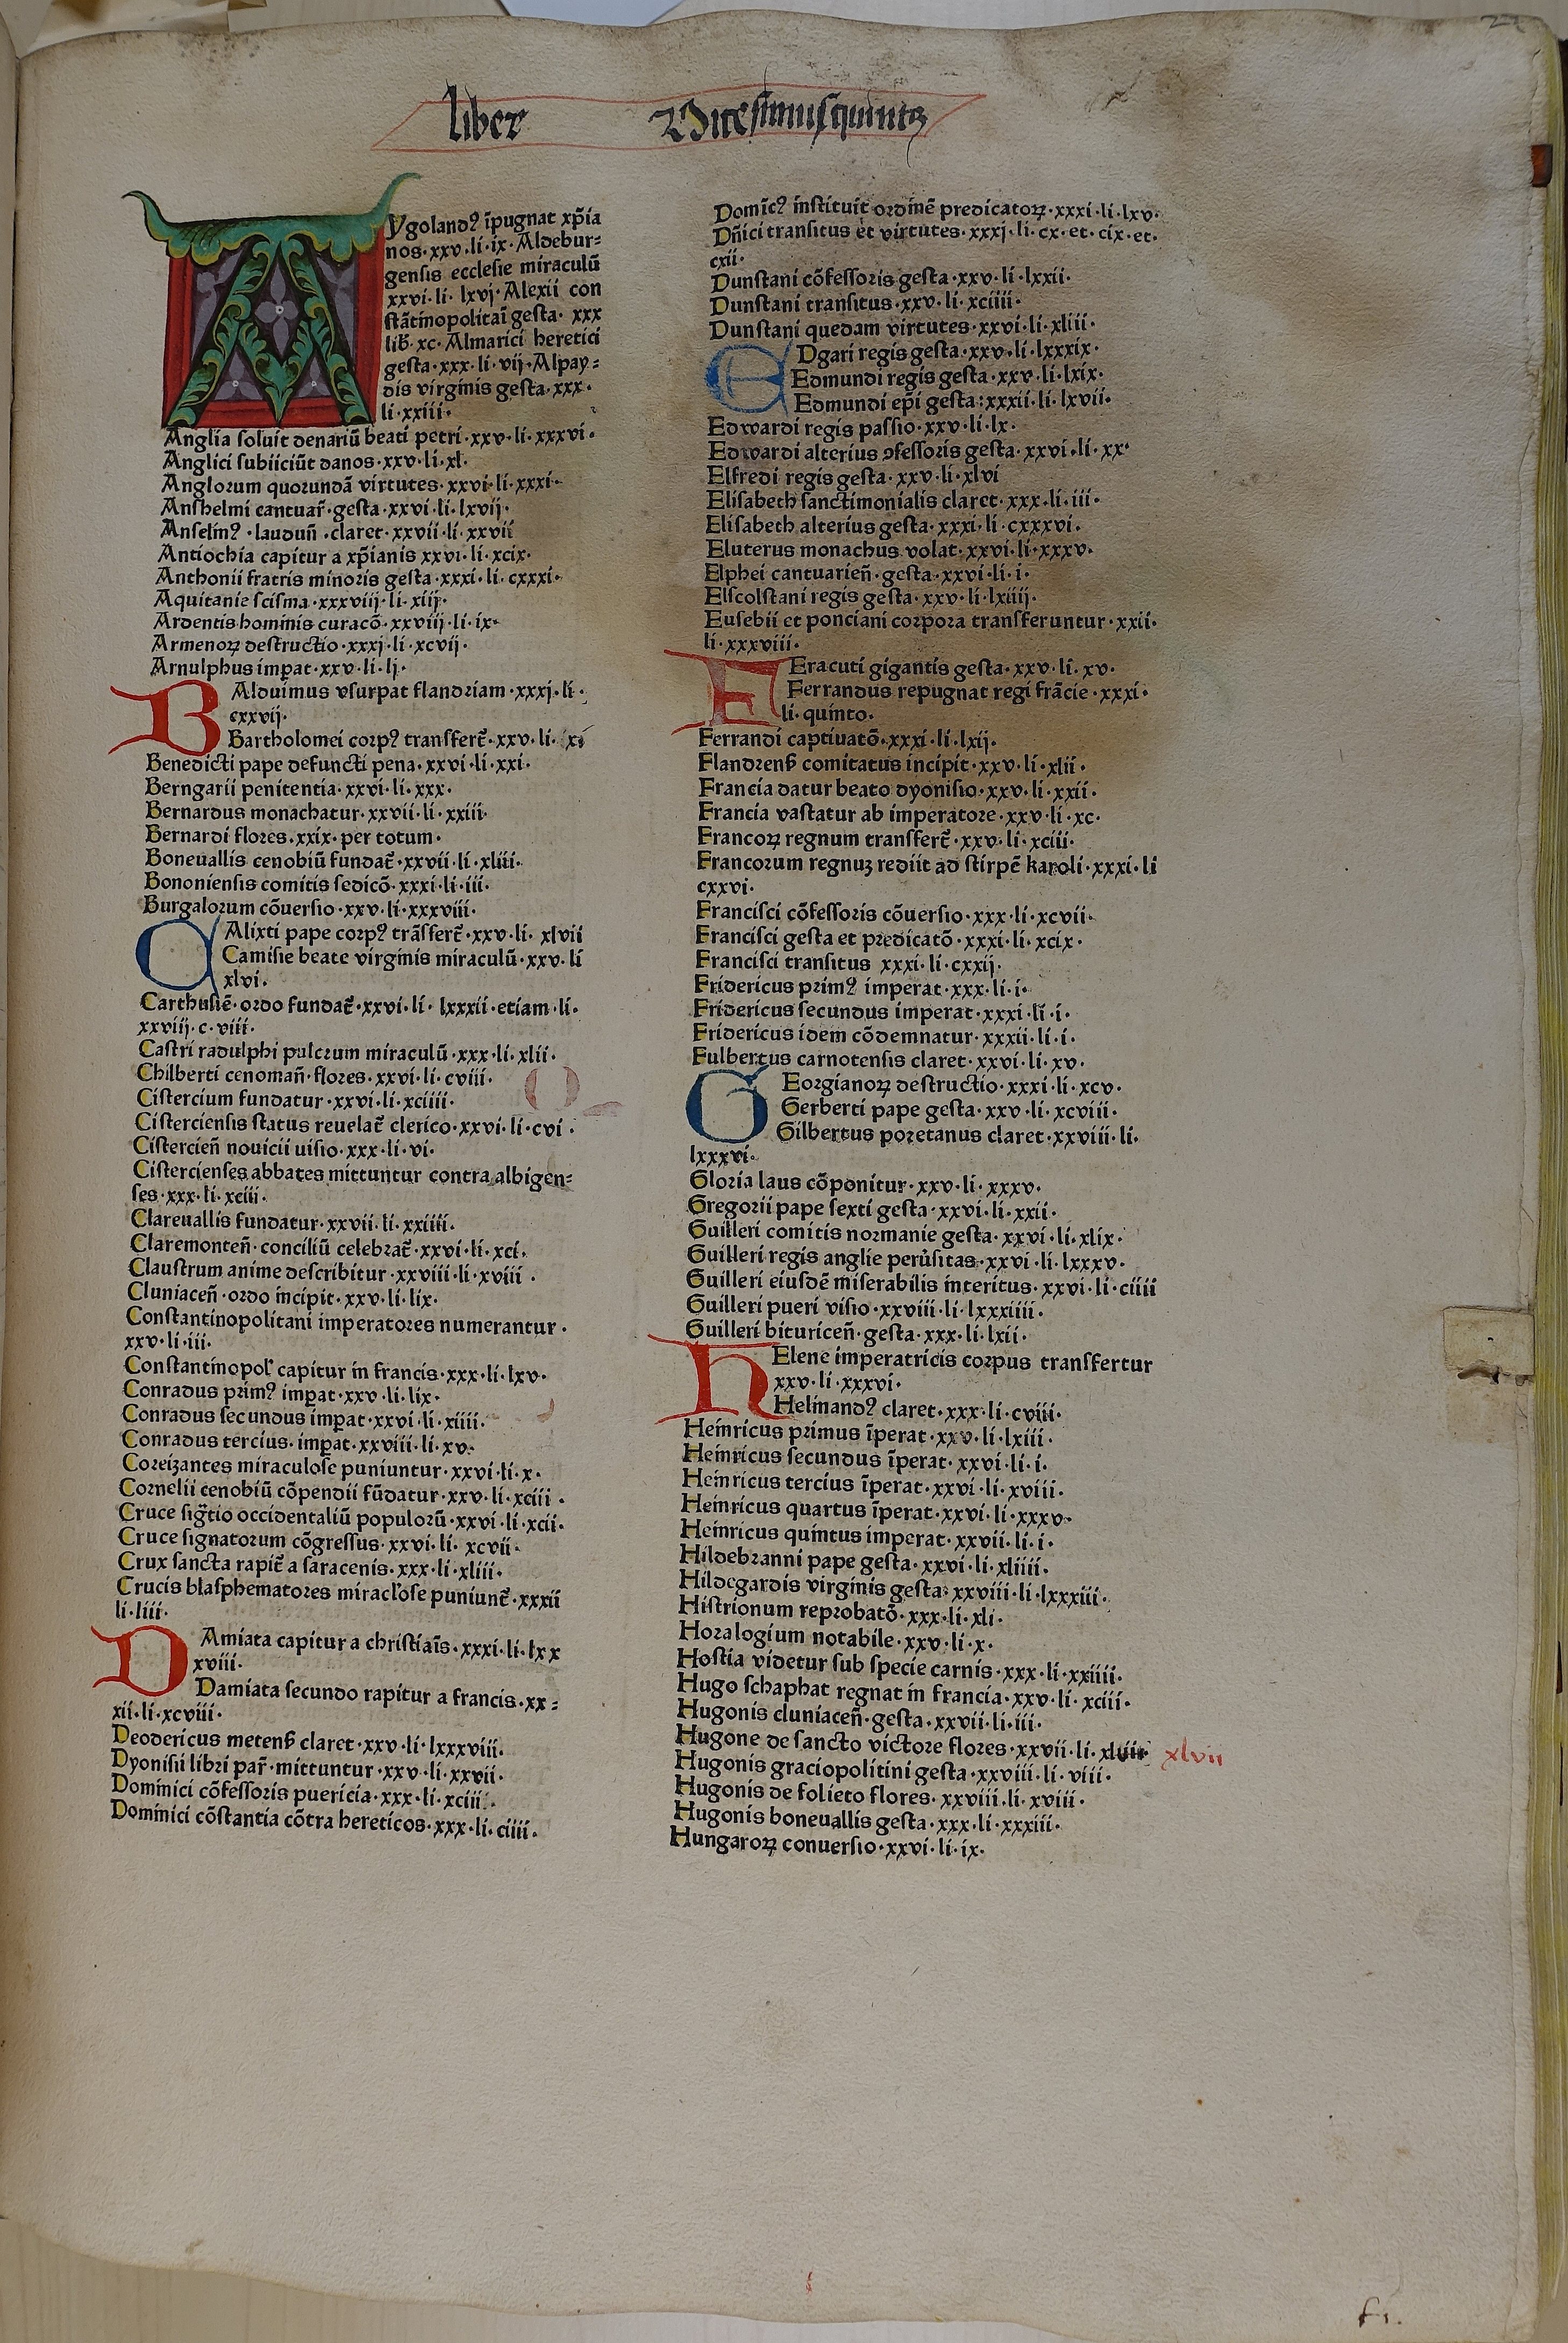 liber Vicesimusquintꝰ
AYgolandꝰ īpugnat xp̄ia
nos·xxv·li·ix·Aldebur⸗
gensis ecclesie miraculū
xxvi·li·lxvj·Alexii con
stātinopolitaī gesta·xxx
lib̄·xc·Almarici heretici
gesta·xxx·li·vij·Alpay⸗
dis virginis gesta·xxx·
li·xxiii·
Anglia soluit denariū beati petri·xxv·li·xxxvi·
Anglici subiiciūt danos·xxv·li·xl·
Anglorum quorundā virtutes·xxvi·li·xxxi·
Anshelmi cantuar̄·gesta·xxvi·li·lxvij·
Anselmꝰ·laudun̄·claret·xxvii·li·xxvii
Antiochia capitur a xp̄ianis xxvi·li·xcix·
Anthonii fratris minoris gesta·xxxi·li·cxxxi·
Aquitanie scisma·xxxviij·li·xiij·
Ardentis hominis curacō·xxviij·li·ix·
Armenoꝝ destructio·xxxj·li·xcvij·
Arnulphus imꝑat·xxv·li·lj·
BAlduimus vsurpat flandriam·xxxj·li·
cxxvij·
Bartholomei corpꝰ transfert̄·xxv·li·
Benedicti pape defuncti pena·xxvi·li·xxi·
Berngarii penitentia·xxvi·li·xxx·
Bernardus monachatur·xxvii·li·xxiii·
Bernardi flores·xxix·per totum·
Boneuallis cenobiū fundat̄·xxvii·li·xliii·
Bononiensis comitis sedicō·xxxi·li·iii·
Burgalorum cōuersio·xxv·li·xxxviii·
CAlixti pape corpꝰ trāsfert̄·xxv·li·xlvii
Camisie beate virginis miraculū·xxv·li
xlvi·
Carthusiē·ordo fundat̄·xxvi·li·lxxxii·etiam·li·
xxviij·c·viii·
Castri radulphi pulcrum miraculū·xxx·li·xlii·
Chilberti cenoman̄·flores·xxvi·li·cviii·
Cistercium fundatur·xxvi·li·xciiii·
Cisterciensis status reuelat̄ clerico·xxvi·li·cvi·
Cistercien̄ nouicii uisio·xxx·li·vi·
Cistercienses abbates mittuntur contra albigen⸗
ses·xxx·li·xciii·
Clareuallis fundatur·xxvii·li·xxiiii·
Claremonten̄·conciliū celebrat̄·xxvi·li·xci·
Claustrum anime describitur·xxviii·li·xviii·
Cluniacen̄·ordo incipit·xxv·li·lix·
Constantinopolitani imperatores numerantur·
xxv·li·iii·
Constantinopol' capitur in francis·xxx·li·lxv·
Conradus primꝰ imꝑat·xxv·li·lix·
Conradus secundus imꝑat·xxvi·li·xiiii·
Conradus tercius·imꝑat·xxviii·li·xv·
Coreizantes miraculose puniuntur·xxvi·li·x·
Cornelii cenobiū cōpendii fūdatur·xxv·li·xciii·
Cruce sig̅tio occidentaliū populorū·xxvi·li·xcii·
Cruce signatorum cōgressus·xxvi·li·xcvii·
Crux sancta rapit̄ a saracenis·xxx·li·xliii·
Crucis blasphematores miracl'ose puniunt̄·xxxii
li·liii·
DAmiata capitur a christiaīs·xxxi·li·lxx
xviii·
Damiata secundo rapitur a francis·xx⸗
xii·li·xcviii·
Deodericus metenß claret·xxv·li·lxxxviii·
Dyonisii libri par̄·mittuntur·xxv·li·xxvii·
Dominici cōfessoris puericia·xxx·li·xciii·
Dominici cōstantia cōtra hereticos·xxx·li·ciiii·
Domīcꝰ instituit ordinē predicatoꝝ·xxxi·li·lxv·
Dn̄ici transitus et virtutes·xxxj·li·cx·et·cix·et·
cxii·
Dunstani cōfessoris gesta·xxv·li·lxxii·
Dunstani transitus·xxv·li·xciiii·
Dunstani quedam virtutes·xxvi·li·xliii·
EDgari regis gesta·xxv·li·lxxxix·
Edmundi regis gesta·xxv·li·lxix·
Edmundi ep̄i gesta:xxxii·li·lxvii·
Edwardi regis passio·xxv·li·lx·
Edwardi alterius ꝯfessoris gesta·xxvi·li·xx·
Elfredi regis gesta·xxv·li·xlvi
Elisabeth sanctimonialis claret·xxx·li·iii·
Elisabeth alterius gesta·xxxi·li·cxxxvi·
Eluterus monachus volat·xxvi·li·xxxv·
Elphei cantuarien̄·gesta·xxvi·li·i·
Elscolstani regis gesta·xxv·li·lxiiij·
Eusebii et ponciani corpora transferuntur·xxii·
li·xxxviii·
FEracuti gigantis gesta·xxv·li·xv·
Ferrandus repugnat regi frācie·xxxi·
li·quinto·
Ferrandi captiuatō·xxxi·li·lxij·
Flandrenß comitatus incipit·xxv·li·xlii·
Francia datur beato dyonisio·xxv·li·xxii·
Francia vastatur ab imperatore·xxv·li·xc·
Francoꝝ regnum transfert̄·xxv·li·xciii·
Francorum regnuꝫ rediit ad stirpē karoli·xxxi·li
cxxvi·
Francisci cōfessoris cōuersio·xxx·li·xcvii·
Francisci gesta et predicatō·xxxi·li·xcix·
Francisci transitus xxxi·li·cxxij·
Fridericus primꝰ imperat·xxx·li·i·
Fridericus secundus imperat·xxxi·li·i·
Fridericus idem cōdemnatur·xxxii·li·i·
Fulbertus carnotensis claret·xxvi·li·xv·
GEorgianoꝝ destructio·xxxi·li·xcv·
Gerberti pape gesta·xxv·li·xcviii·
Gilbertus poretanus claret·xxviii·li·
lxxxvi·
Gloria laus cōponitur·xxv·li·xxxv·
Gregorii pape sexti gesta·xxvi·li·xxii·
Guilleri comitis normanie gesta·xxvi·li·xlix·
Guilleri regis anglie perůsitas·xxvi·li·lxxxv·
Guilleri eiusdē miserabilis interitus·xxvi·li·ciiii
Guilleri pueri visio·xxviii·li·lxxxiiii·
Guilleri bituricen̄·gesta·xxx·li·lxii·
HElene imperatricis corpus transfertur
xxv·li·xxxvi·
Helinandꝰ claret·xxx·li·cviii·
Heinricus primus īperat·xxv·li·lxiii·
Heinricus secundus īperat·xxvi·li·i·
Heinricus tercius īperat·xxvi·li·xviii·
Heinricus quartus īperat·xxvi·li·xxxv·
Heinricus quintus imperat·xxvii·li·i·
Hildebranni pape gesta·xxvi·li·xliiii·
Hildegardis virginis gesta·xxviii·li·lxxxiii·
Histrionum reprobatō·xxx·li·xli·
Horalogium notabile·xxv·li·x·
Hostia videtur sub specie carnis·xxx·li·xxiiii·
Hugo schaphat regnat in francia·xxv·li·xciii·
Hugonis cluniacen̄·gesta·xxvii·li·iii·
Hugone de sancto victore flores·xxvii·li· xlvii
Hugonis graciopolitini gesta·xxviii·li·viii·
Hugonis de folieto flores·xxviii·li·xviii·
Hugonis boneuallis gesta·xxx·li·xxxiii·
Hungaroꝝ conuersio·xxvi·li·ix·
f1.